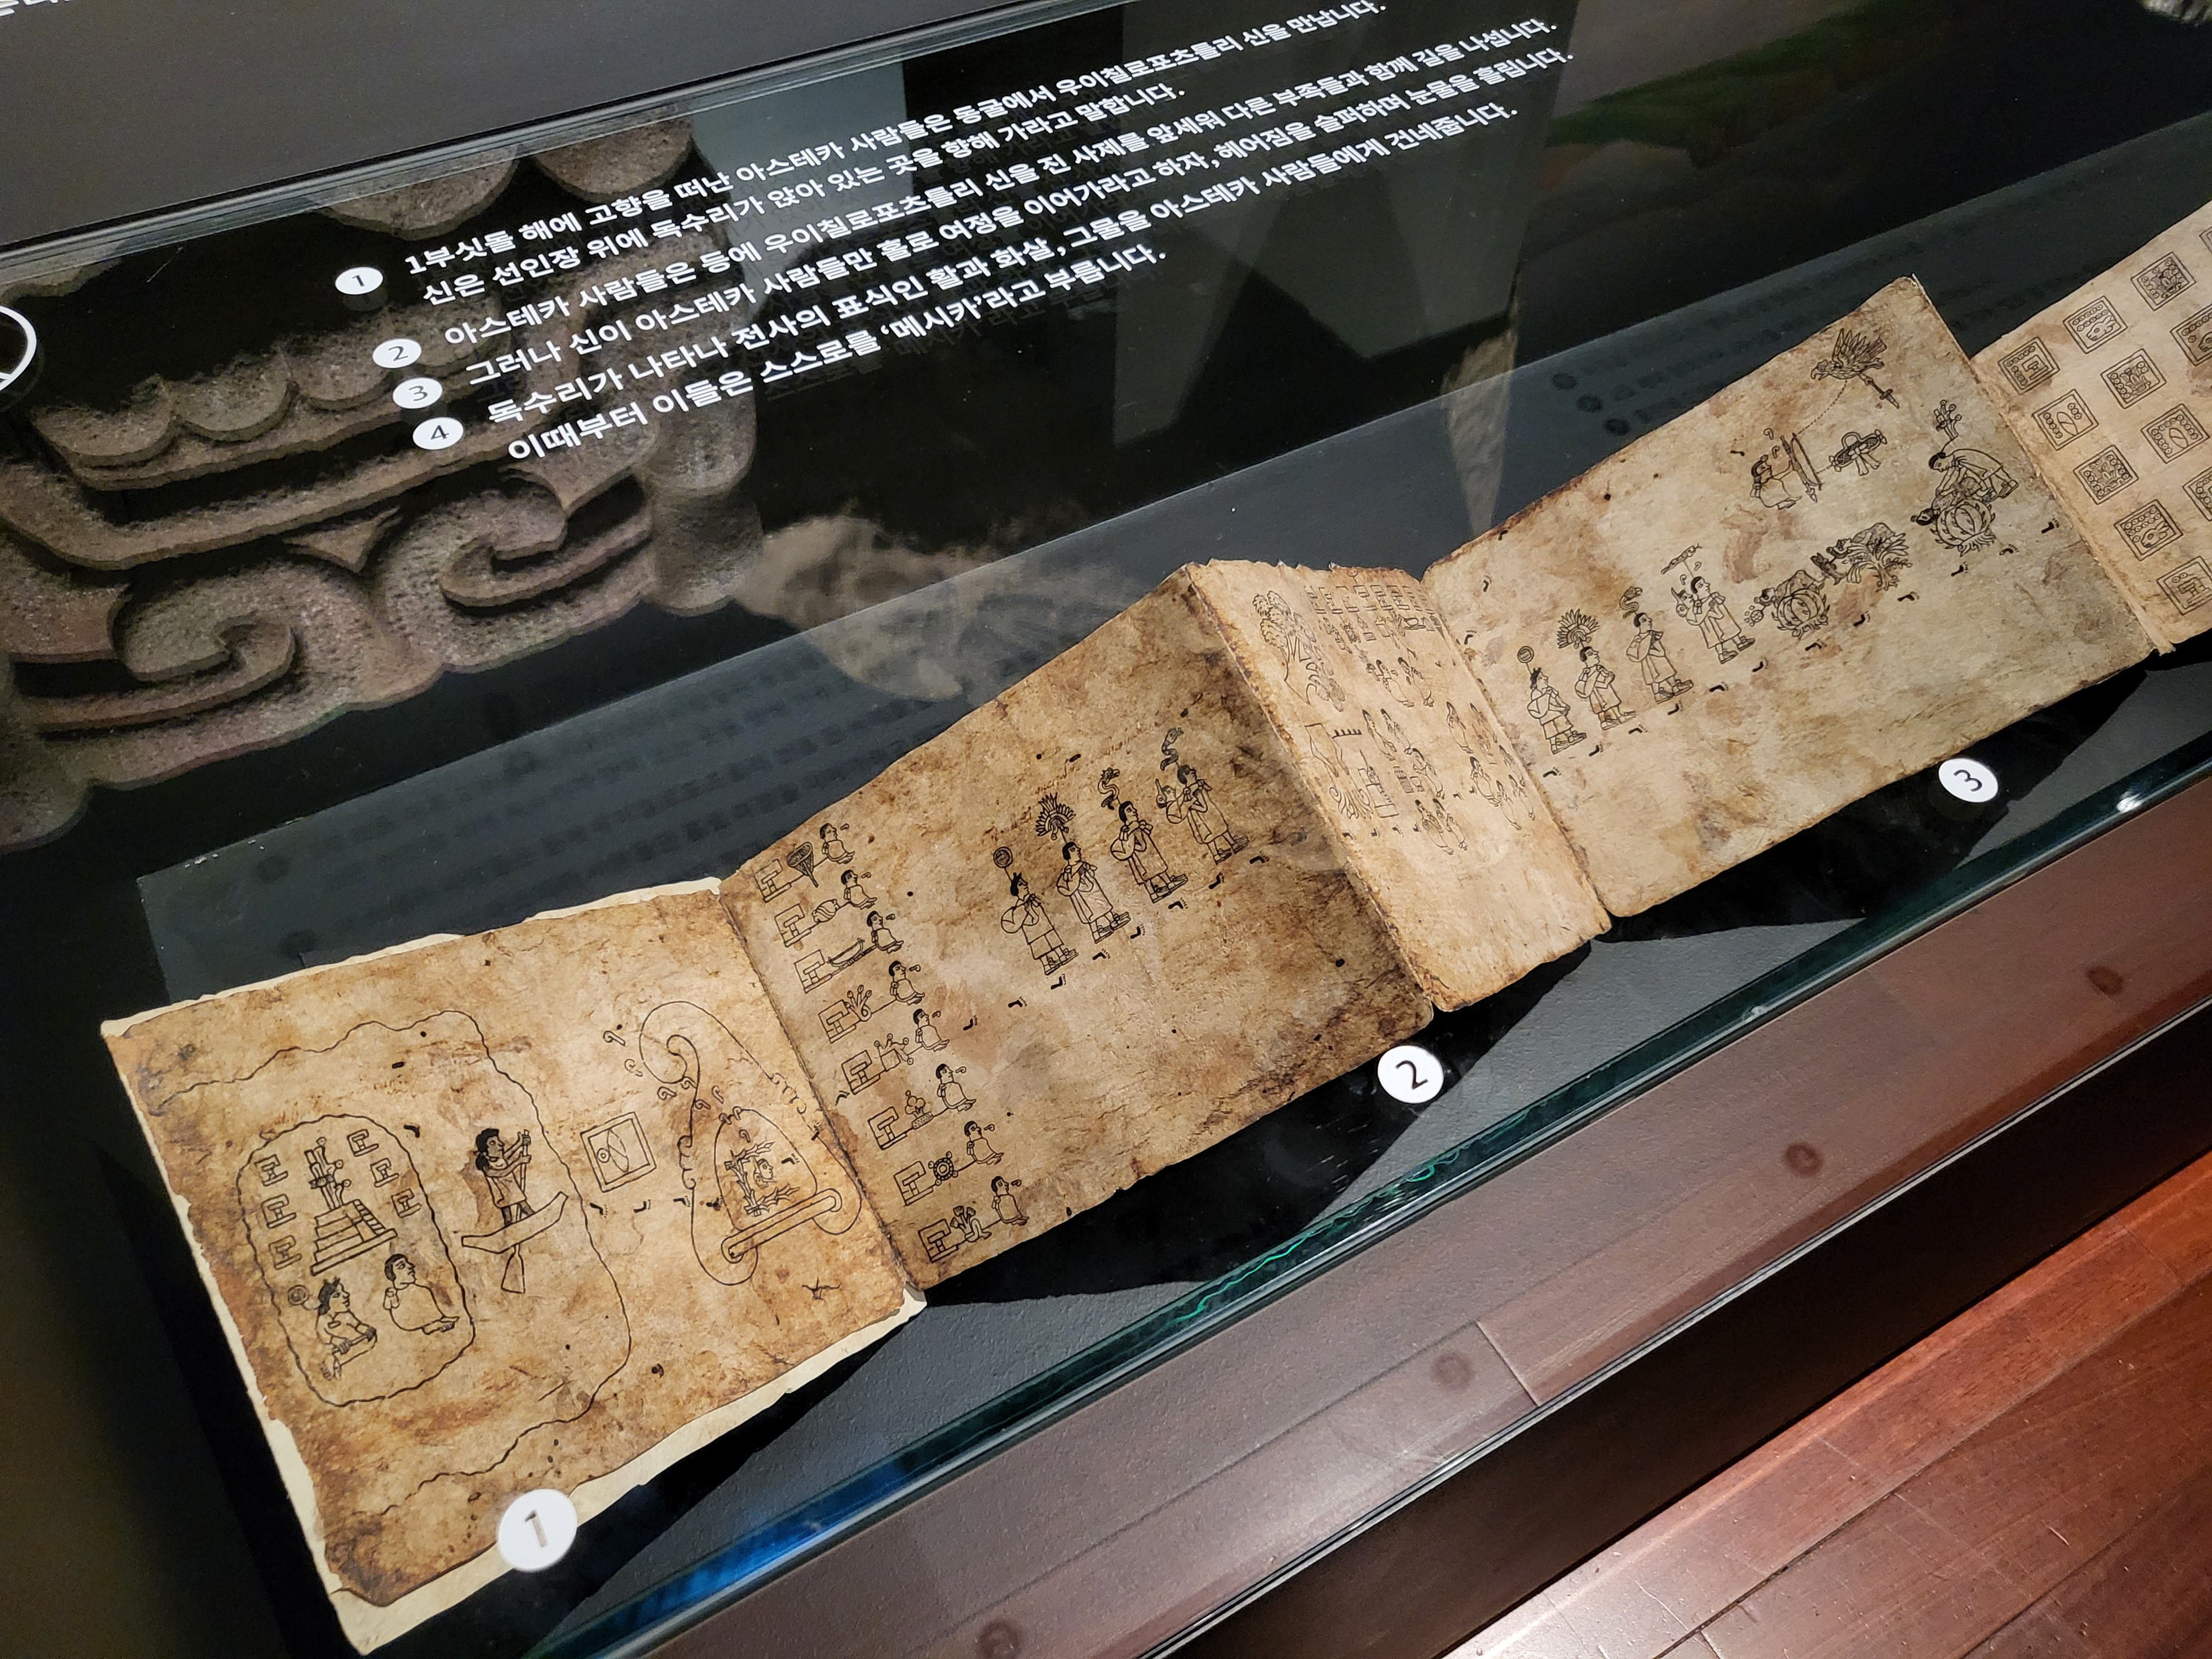 1 1부싯돌 해에 고향을 떠난 아스테카 사람들은 동굴에서 우이칠로포츠틀리 신을 만납니다.
신은 선인장 위에 독수리가 앉아 있는 곳을 향해 가라고 말합니다.
2 아스테카 사람들은 등에 우이칠로포츠틀리 신을 진 사제를 앞세워 다른 부족들과 함께 길을 나섭니다.
3 그러나 신이 아스테카 사람들만 홀로 여정을 이어가라고 하자, 헤어짐을 슬퍼하며 눈물을 흘립니다.
4 독수리가 나타나 전사의 표식인 활과 화살, 그물을 아스테카 사람들에게 건네줍니다.
이때부터 이들은 스스로를 ‘메시카’라고 부릅니다.
1
2
3